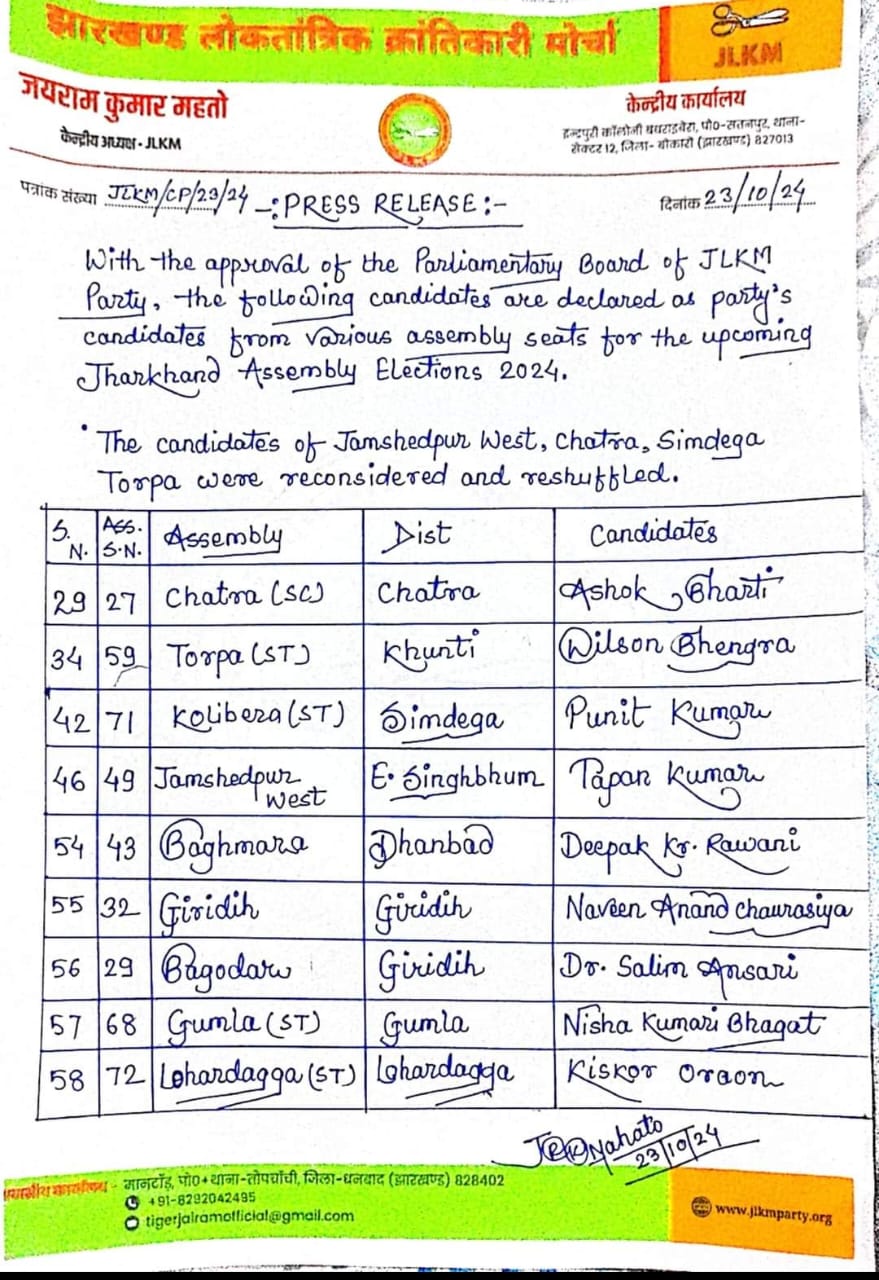 झारखण्ड लोकतांत्रिक क्रांतिकारी मोर्चा
JLKM
जयराम कुमार महतो
केन्द्रीय अध्यक्ष - JLKM
केन्द्रीय कार्यालय
इन्द्रपुरी कॉलोनी चयराइबेरा, पो०-सतनपुर, थाना-
सेक्टर 12, जिला- बोकारो (झारखण्ड) 827013
पत्रांक संख्या JLKM/CP/23/24 -:PRESS RELEASE:- दिनांक 23/10/24
With the approval of the Parliamentary Board of JLKM
Party, the following candidates are declared as party's
candidates from various assembly seats for the upcoming
Jharkhand Assembly Elections 2024.
• The candidates of Jamshedpur West, Chatra, Simdega
Torpa were reconsidered and reshuffled.
S.N. Ass. S.N. Assembly Dist Candidates
29 27 Chatra (SC) Chatra Ashok Bharti
34 59 Torpa (ST) Khunti Wilson Bhengra
42 71 Kolibera (ST) Simdega Punit Kumar
46 49 Jamshedpur West E. Singhbhum Tapan Kumar
54 43 Baghmara Dhanbad Deepak Kr. Rawani
55 32 Giridih Giridih Naveen Anand Chaurasiya
56 29 Bagodar Giridih Dr. Salim Ansari
57 68 Gumla (ST) Gumla Nisha Kumari Bhagat
58 72 Lohardagga (ST) Lohardagga Kiskor Oraon
Mahato
23/10/24
कार्यालय - मानटाँड़, पो०+थाना-तोपचाँची, जिला-धनबाद (झारखण्ड) 828402
+91-8292042495
tigerjairamofficial@gmail.com
www.jlkmparty.org